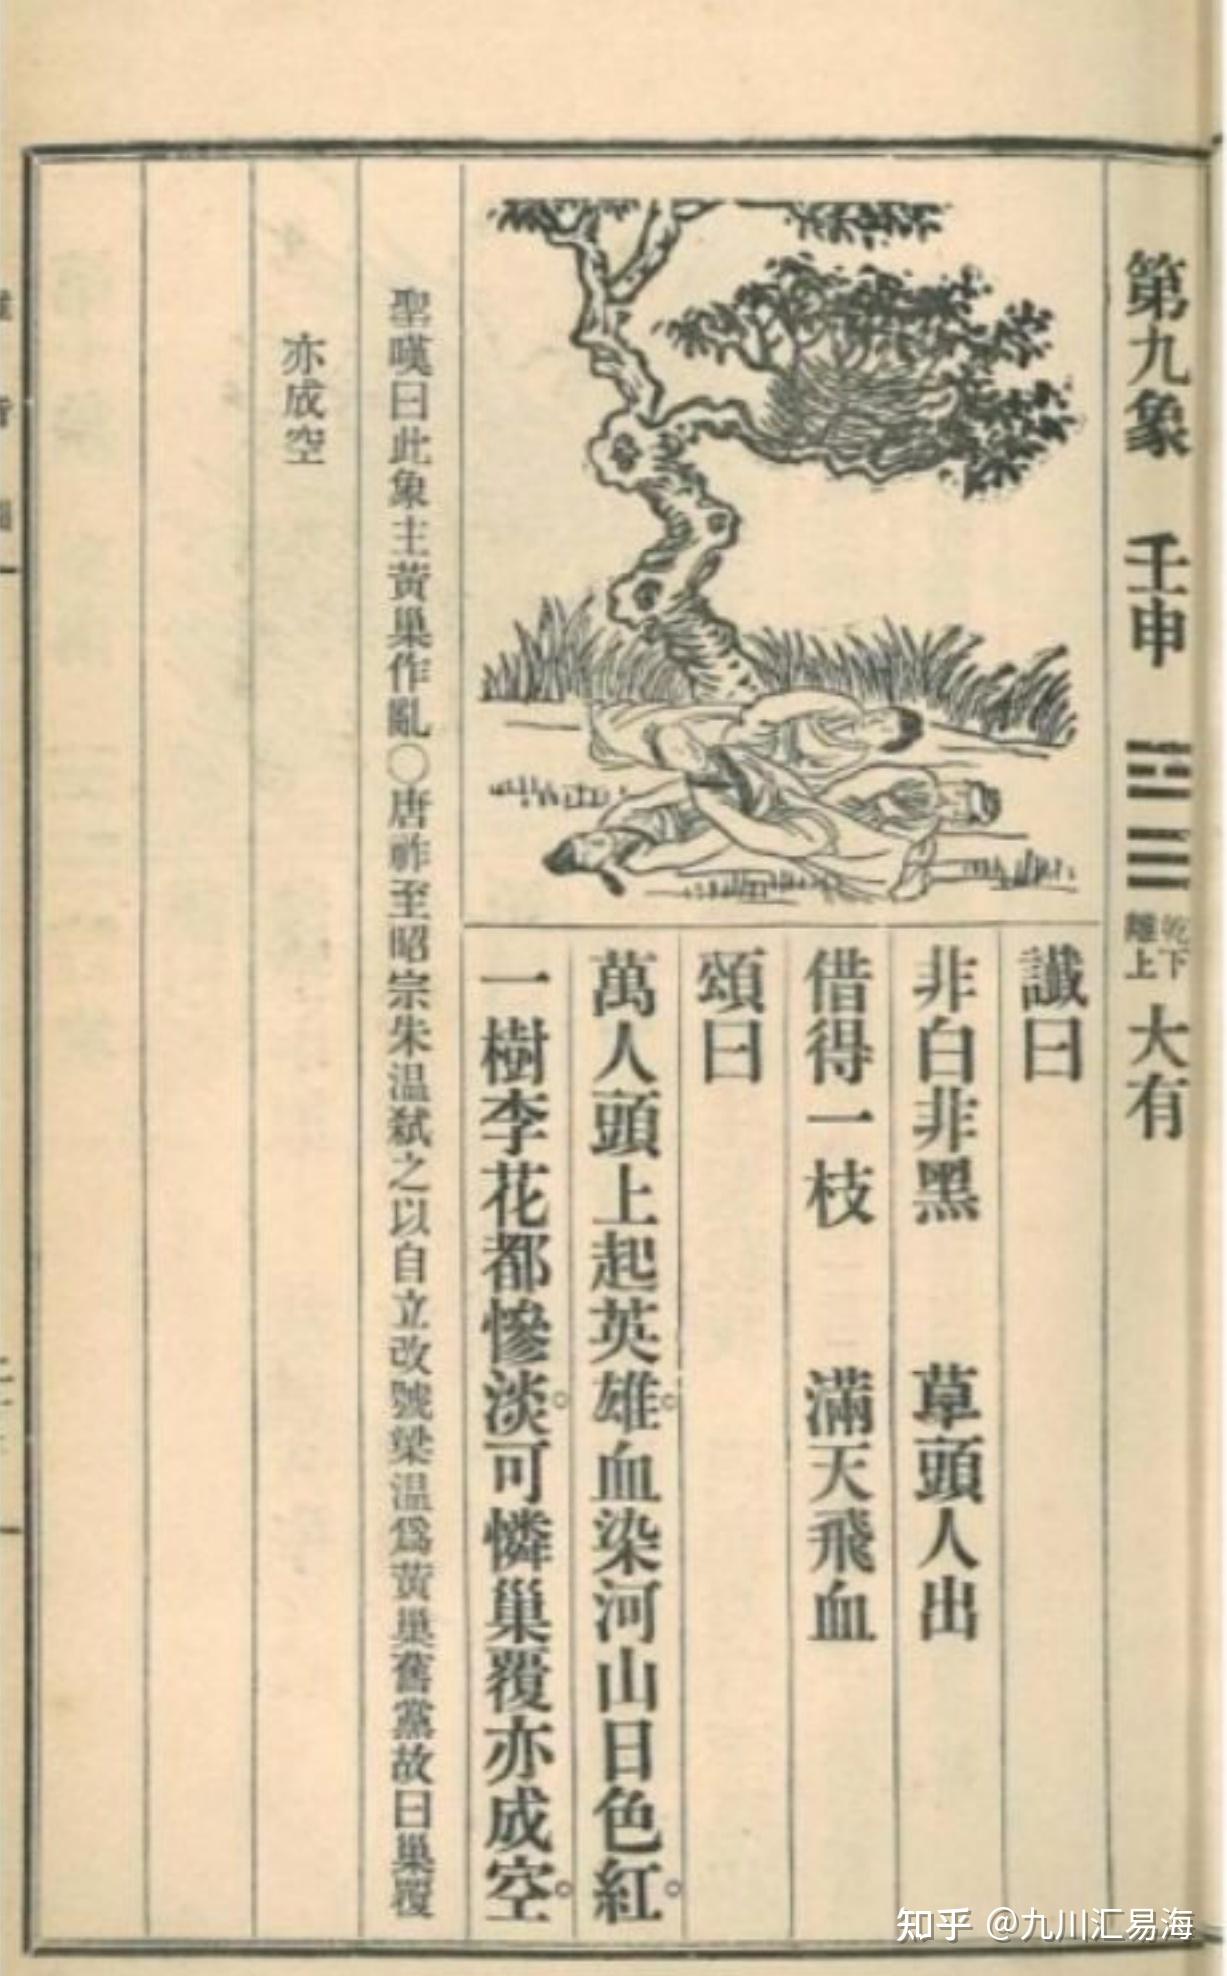 第九象 壬申 乾下離上 大有
讖曰
非白非黑 草頭人出
借得一枝 滿天飛血
頌曰
萬人頭上起英雄。血染河山日色紅。
一樹李花都慘淡。可憐巢覆亦成空。
聖嘆曰此象主黃巢作亂〇唐祚至昭宗朱温弑之以自立改號梁温爲黃巢舊黨故曰巢覆
亦成空
知乎 @九川汇易海